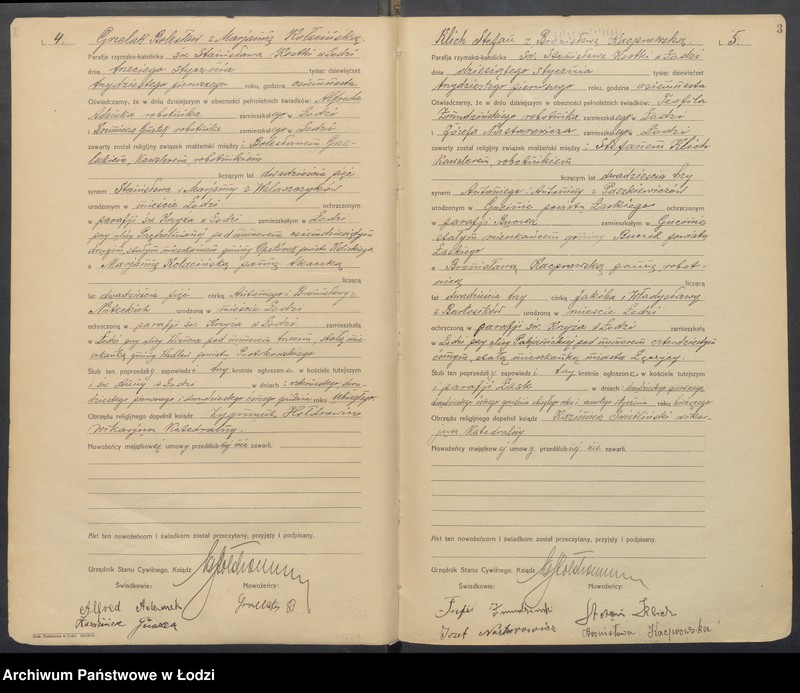 4. Grzelak Bolesław z Marjanną Kołacińską
Parafia rzymsko-katolicka św. Stanisława Kostki w Łodzi
dnia trzeciego stycznia tysiąc dziewięćset
trzydziestego pierwszego roku, godzina osiemnasta
Oświadczamy, że w dniu dzisiejszym w obecności pełnoletnich świadków: Alfreda
Adamka robotnika zamieszkałego w Łodzi
i Kazimierza robotnika zamieszkałego w Łodzi
zawarty został religijny związek małżeński między: Bolesławem Grze-
lakiem, kawalerem, robotnikiem
liczącym lat dwadzieścia pięć
synem Stanisława i Marjanny z Walaszczyków
urodzonym w mieście Łodzi ochrzczonym
w parafji św. Krzyża w Łodzi zamieszkałym w Łodzi
przy ulicy pod numerem osiemdziesiątym
drugim stałym mieszkańcem gminy powiatu
a Marjanną Kołacińską panną tkaczką
liczącą
lat dwadzieścia pięć córką Antoniego i Bronisławy z
Niteckich urodzoną w mieście Łodzi
ochrzczoną w parafji św. Krzyża w Łodzi zamieszkałą
w Łodzi przy ulicy pod numerem trzecim, stałą mie-
szkanką gminy Wadlew powiatu Piotrkowskiego
Ślub ten poprzedziły zapowiedzi trzykrotnie ogłoszone w kościele tutejszym
i św. Anny w Łodzi w dniach: czternastego, dwu-
dziestego pierwszego i dwudziestego ósmego grudnia roku ubiegłego.
Obrzędu religijnego dopełnił ksiądz Zygmunt
wikarjusz Katedralny.
Nowożeńcy majątkowej umowy przedślubnej nie zawarli.
Akt ten nowożeńcom i świadkom został przeczytany, przyjęty i podpisany.
Urzędnik Stanu Cywilnego, Ksiądz
Świadkowie: Nowożeńcy:
Alfred Adamek Grzelak B
Kazimierz
3
Klich Stefan z Bronisławą Kacprowską. 5.
Parafia rzymsko-katolicka św. Stanisława Kostki w Łodzi
dnia dziesiątego stycznia tysiąc dziewięćset
trzydziestego pierwszego roku, godzina osiemnasta
Oświadczamy, że w dniu dzisiejszym w obecności pełnoletnich świadków: Teofila
robotnika zamieszkałego w Łodzi
i Józefa zamieszkałego w Łodzi
zawarty został religijny związek małżeński między: Stefanem Klich
kawalerem, robotnikiem
liczącym lat dwadzieścia trzy
synem Antoniego i Antoniny z Paszkiewiczów
urodzonym w Gucinie powiatu Łaskiego ochrzczonym
w parafji Buczek zamieszkałym w Gucinie
stałym mieszkańcem gminy Buczek powiatu
Łaskiego
a Bronisławą Kacprowską panną robot-
nicą liczącą
lat dwadzieścia trzy córką Jakóba i Władysławy
z Bartosików urodzoną w mieście Łodzi
ochrzczoną w parafji św. Krzyża w Łodzi zamieszkałą
w Łodzi przy ulicy pod numerem czterdziestym
ósmym, stałą mieszkanką miasta Łęczycy
Ślub ten poprzedziły zapowiedzi trzykrotnie ogłoszone w kościele tutejszym
i parafji Łask w dniach: dwudziestego pierwszego,
dwudziestego ósmego grudnia ubiegłego roku i czwartego stycznia roku bieżącego
Obrzędu religijnego dopełnił ksiądz Kazimierz wikar-
jusz Katedralny
Nowożeńcy majątkowej umowy przedślubnej nie zawarli.
Akt ten nowożeńcom i świadkom został przeczytany, przyjęty i podpisany.
Urzędnik Stanu Cywilnego, Ksiądz
Świadkowie: Nowożeńcy:
Stefan Klich
Józef Bronisława Kacprowska
Archiwum Państwowe w Łodzi